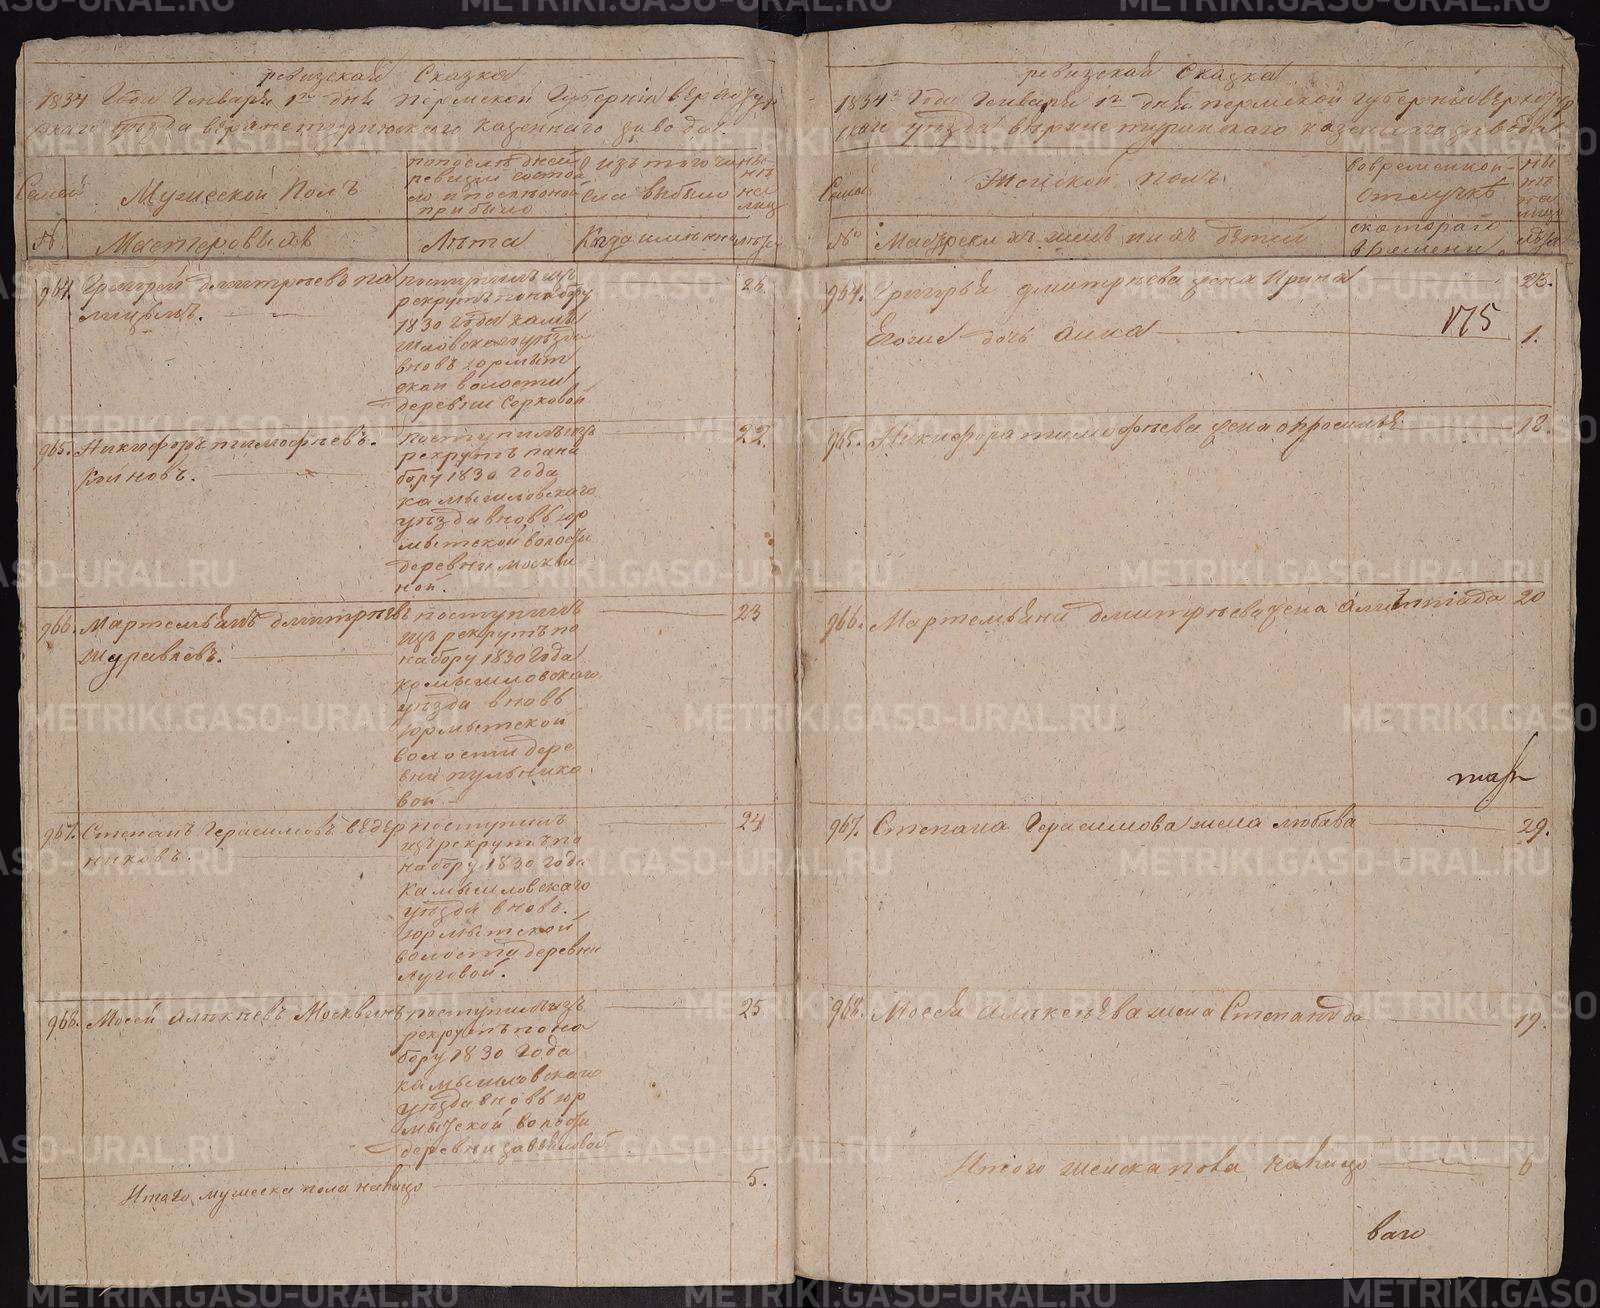 ревизская Сказка
1834 Года Генваря 1го дня пермской Губернии верхотур
скаго уѣзда верхнетуринскаго казеннаго завода.
Семей
Мужеской Полъ
попослѣ дней
ревизии состоя
ло и послѣоной
прибыло
изътого чи
сла выбыло
ны
нѣ
на
лиц
№
Мастеровыя
Лѣта
Когда имянно
лѣта
964.
Григорей дмитрiевъ па
лицынъ.
поступилъ изъ
рекрутъ понабору
1830 года камы
шловскаго уѣзда
вновъ юрмыт
ской волости
деревни Серковой
26.
965.
Никифоръ тимофѣевъ.
Коиновъ.
поступилъ изъ
рекрутъ пона
бору 1830 года
камышловскаго
уѣзда вновь юр
мытской волости
деревни москви
ной.
22.
966.
Мартемьянъ дмитрiевъ
журавлевъ.
поступилъ
изъ рекрутъ по
набору 1830 года
камышловскаго
уѣзда вновь
юрмытской
волости дере
вни пульнико
вой
23
967.
Степанъ Герасимовъ ведер
никовъ.
поступилъ
изърекрутъ по
набору 1830 года
камышловскаго
уѣзда вновь.
юрмытской
волости деревни
луговой.
24
968.
Мосей Алѣкѣевъ Москвинъ
поступилъ изъ
рекрутъ по на
бору 1830 года
камышловскаго
уѣзда вновь юр
мытской волости
деревни завьяловой
25
Итого мужеска пола налицо
5.
ревизская Сказка
1834 Года Генваря 1го дня пермской губернии верхотур
скаго уѣзда верхнетуринскаго казеннаго завода
Семей
Женской полъ
вовременной
отлучкѣ
ны
нѣ
на
лицо
№
Мастерски ихъ жены и ихъ дѣтей
скотораго
времени
лѣта
964.
Григорья дмитрiева жена Ирина
23.
175
Егоже дочь анна
1.
965.
Никифора тимофѣева жена офросинья
18.
966.
Мартемьяна дмитрiева жена олимпiада
20
967.
Степана Герасимова жена любава
29.
968.
Моѵсея Алѣксѣева жена Степанида
19.
Итого женска пола налицо
6
ваго